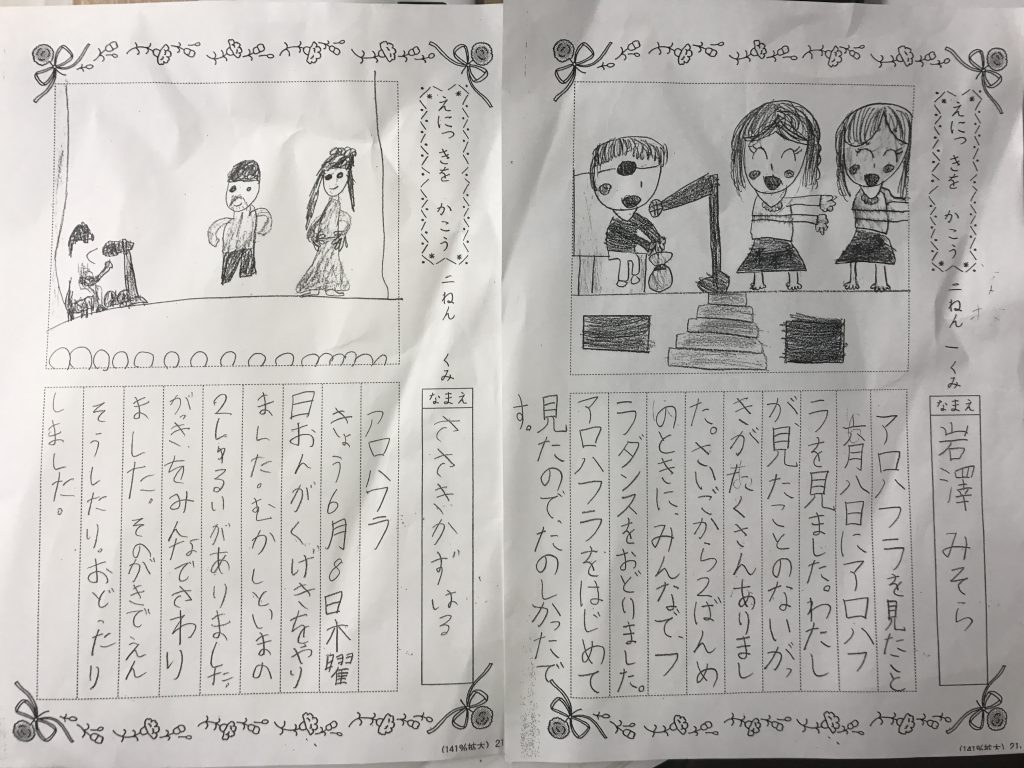 えにっ きを かこう 二ねん 一くみ
なまえ
岩澤 みそら
アロハ フラを見たこと
六月八日にアロハフ
ラを見ました。わたし
が見たことのないがっ
きがたくさんありまし
た。さいごから2ばんめ
のときに、みんなで、フ
ラダンスをおどりました。
アロハフラをはじめて
見たので、たのしかったで
す。
(141%拡大) 21.
えにっ きを かこう 二ねん くみ
なまえ
ささきかずはる
アロハフラ
きょう6月8日木曜
日おんがくげきをやり
ました。むかしといまの
2しゅるいがありました。
がっきをみんなでさわり
ました。そのがきでえん
そうしたり。おどったり
しました。
(141%拡大) 21